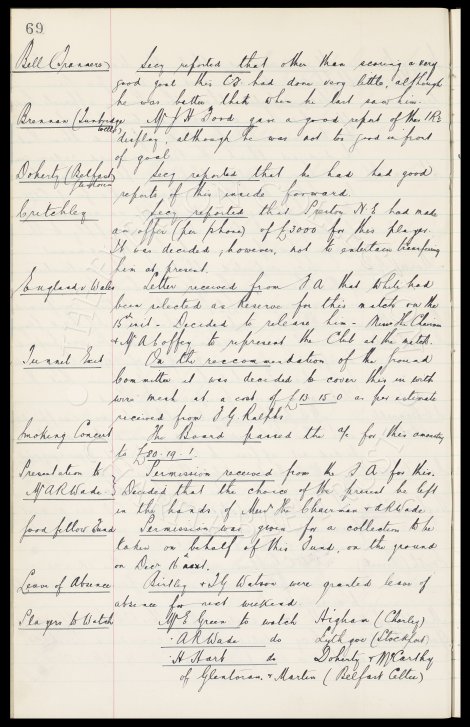 69
Bell (Tranmere) Secy reported that other than scoring a very
good goal this C.F. had done very little, although
he was better than when he last saw him.
Brennan (Tunbridge Wells) Mr J H Tood gave a good report of this I.R's
display, although he was not too good in front
of goal
Doherty (Belfast Glentoran) Secy reported that he had had good
reports of this inside forward.
Critchley Secy reported that Preston N.E had made
an offer (per phone) of £3000 for this player.
It was decided, however, not to entertain transferring
him at present.
England v Wales Letter received from F A that White had
been selected as Reserve for this match on the
15th inst - Decided to release him - Messrs The Chairman
& Mr A Coffey to represent the Club at the match.
Tunnel Exit On the reccommendation of the Ground
Committee it was decided to cover this in with
wire mesh at a cost of £13 15 0 as per estimate
received from F G Ralphs
Smoking Concert The Board passed the a/c for this amounting
to £80. 19. 1
Presentation to Permission received from the F A for this.
Mr A R Wade } Decided that the choice of the present be left
in the hands of Messrs The Chairman & A R Wade
Goodfellow Fund Permission was given for a collection to be
taken on behalf of this Fund, on the ground
on Decr 16th next.
Leave of Absence Birtley & T G Watson were granted leave of
absence for next weekend
Players to Watch Mr E Green to watch Higham (Chorley)
" A R Wade do Lythgoe (Stockport)
" H Hart do Doherty & McCarthy
of Glentoran & Martin (Belfast Celtic)